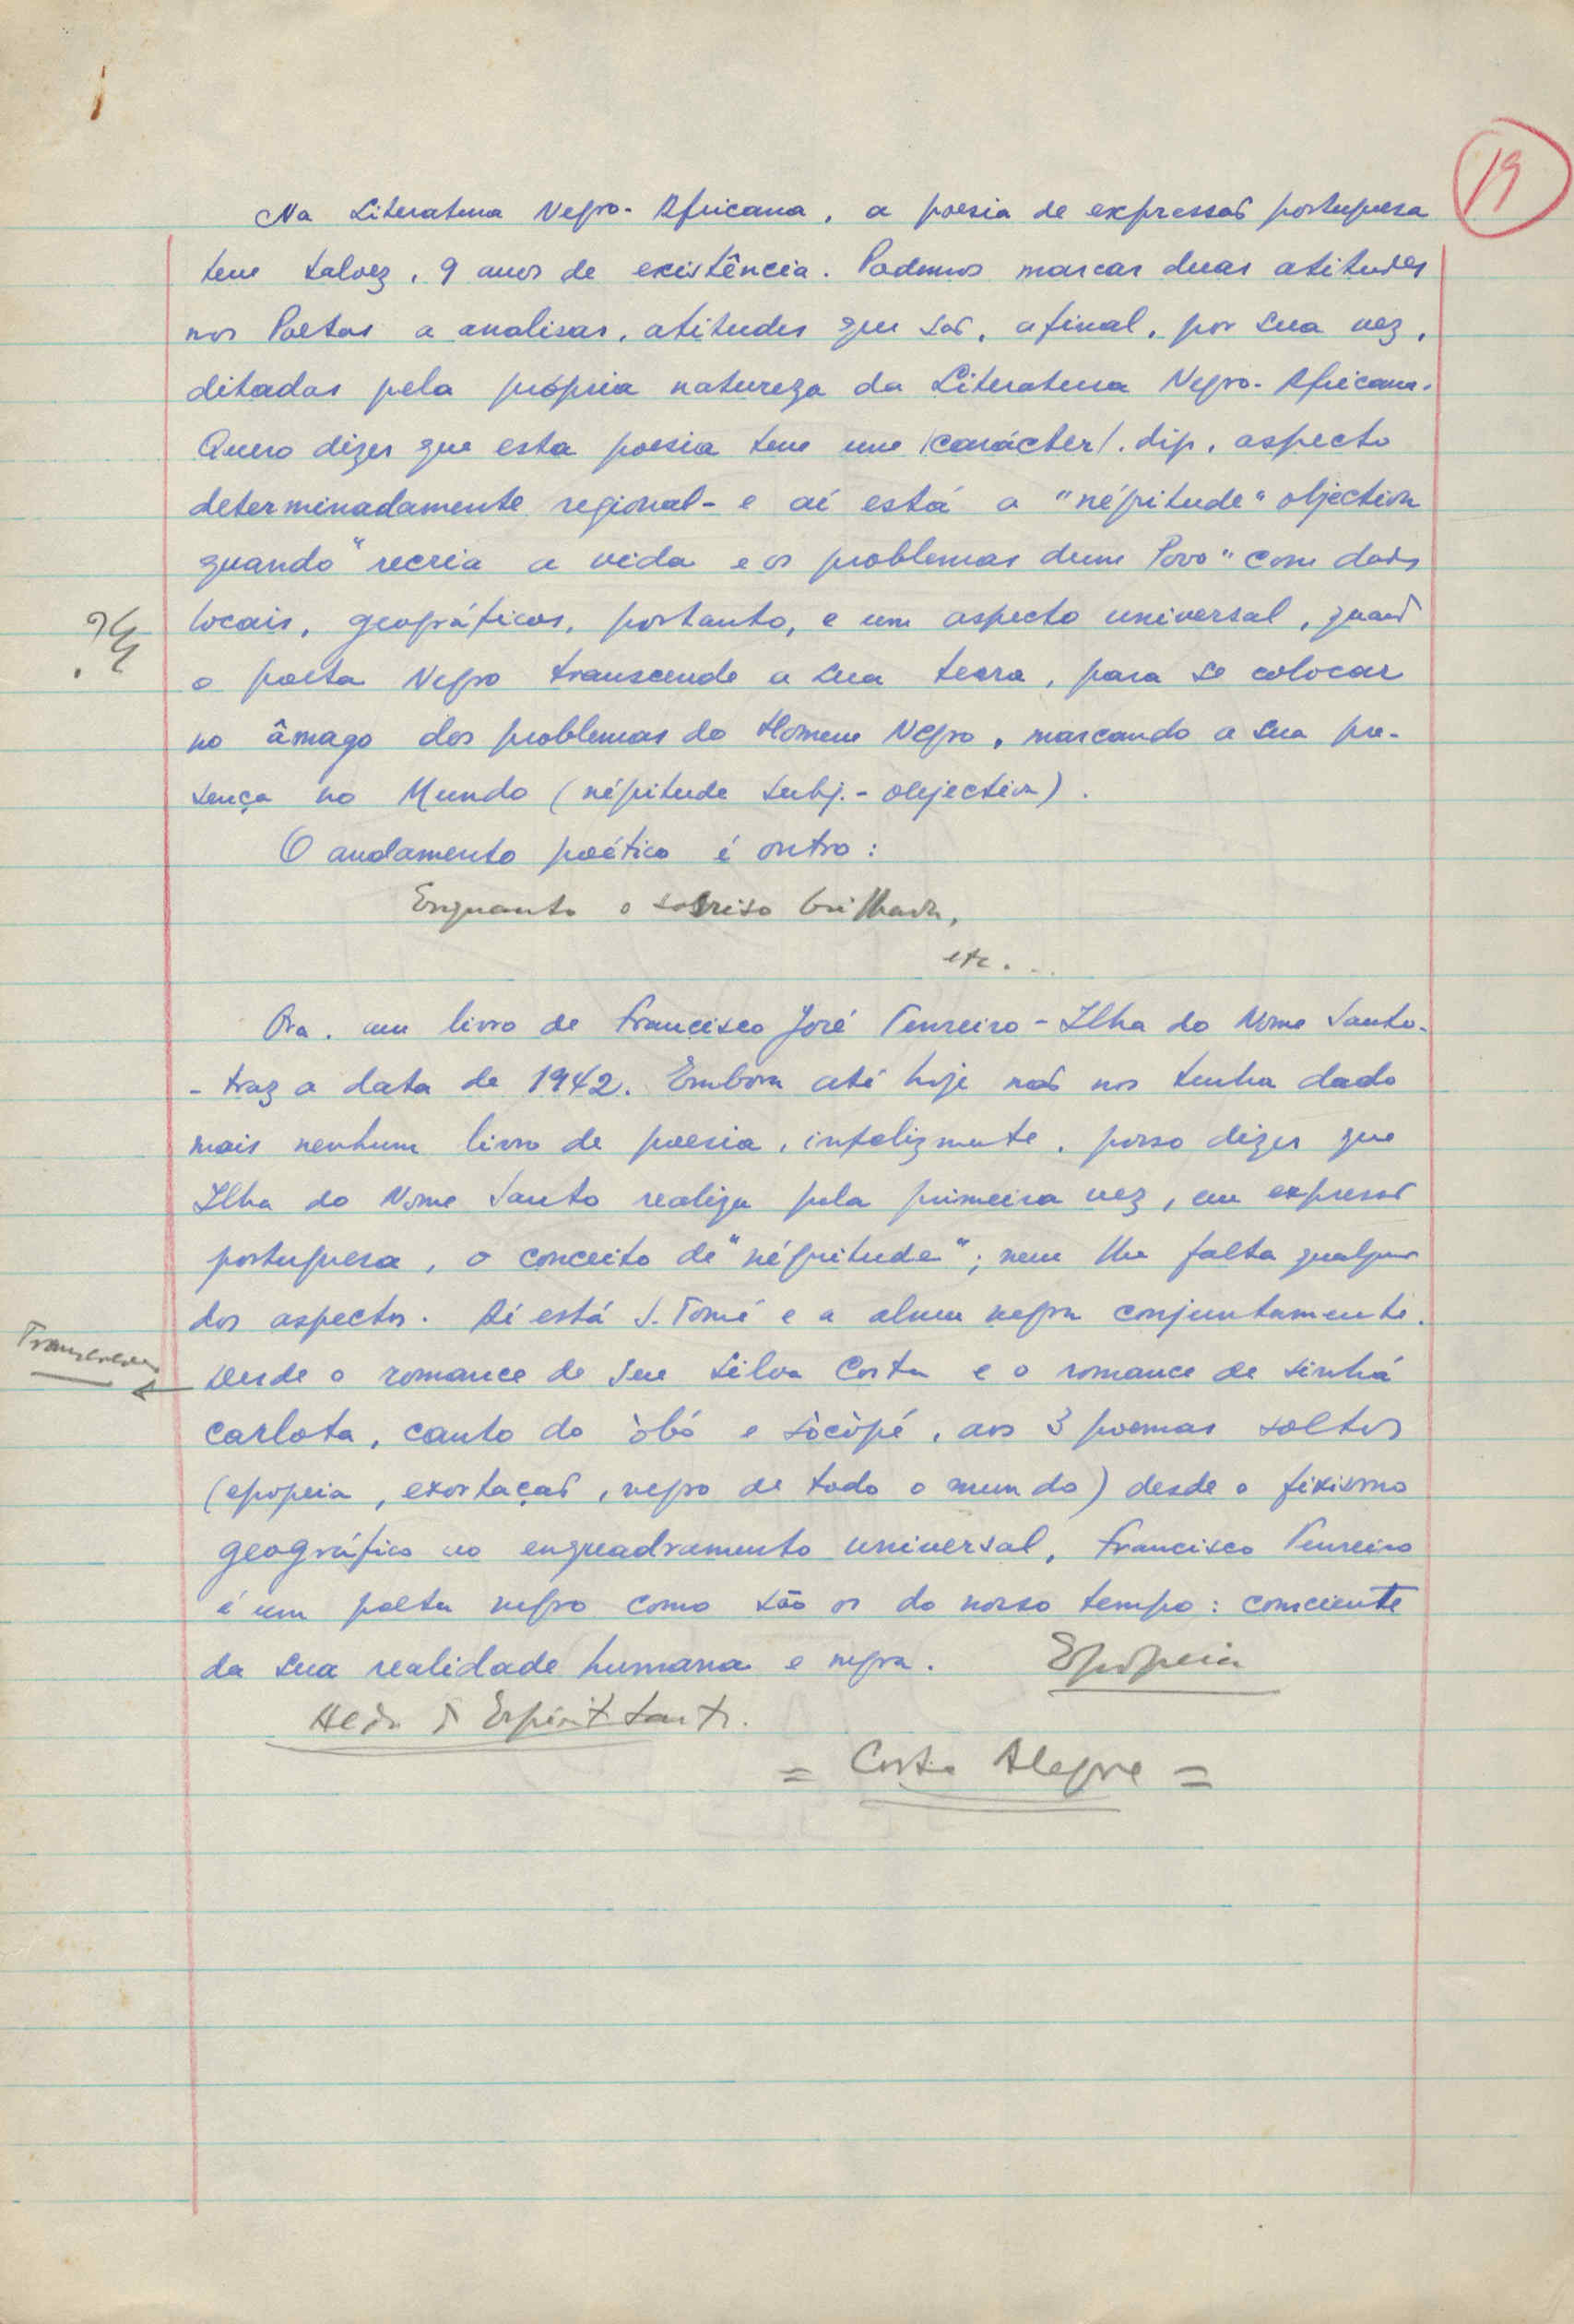 19
Na Literatura Negro-Africana, a poesia de expressão portuguesa
tem talvez, 9 anos de existência. Podemos marcar duas atitudes
nos Poetas a analisar, atitudes que são, afinal, por sua vez,
ditadas pela própria natureza da Literatura Negro-Africana.
Quero dizer que esta poesia tem um /carácter/. dig. aspecto
determinadamente regional - e aí está a "négritude" objectiva
quando "recria a vida e os problemas dum Povo" com dados
locais, geográficos, portanto, e um aspecto universal, quando
o poeta Negro transcende a sua terra, para se colocar
no âmago dos problemas do Homem Negro, marcando a sua pre-
sença no Mundo (négritude subj.-objectiva).
O andamento poético é outro:
Enquanto o sorriso brilhava,
etc...
Ora, um livro de Francisco José Tenreiro - Ilha do Nome Santo -
- traz a data de 1942. Embora até hoje não nos tenha dado
mais nenhum livro de poesia, infelizmente, posso dizer que
Ilha do Nome Santo realiza pela primeira vez, em expressão
portuguesa, o conceito de "négritude"; nem lhe falta qualquer
dos aspectos. Aí está S. Tomé e a alma negra conjuntamente.
Desde o romance de Seu Silva Costa e o romance de sinhá
carlota, canto do òbó e sòcòpé, aos 3 poemas soltos
(epopeia, exortação, negro de todo o mundo) desde o fixismo
geográfico ao enquadramento universal, Francisco Tenreiro
é um poeta negro como são os do nosso tempo: consciente
da sua realidade humana e negra. Epopeia
Alda do Espírito Santo.
= Costa Alegre =